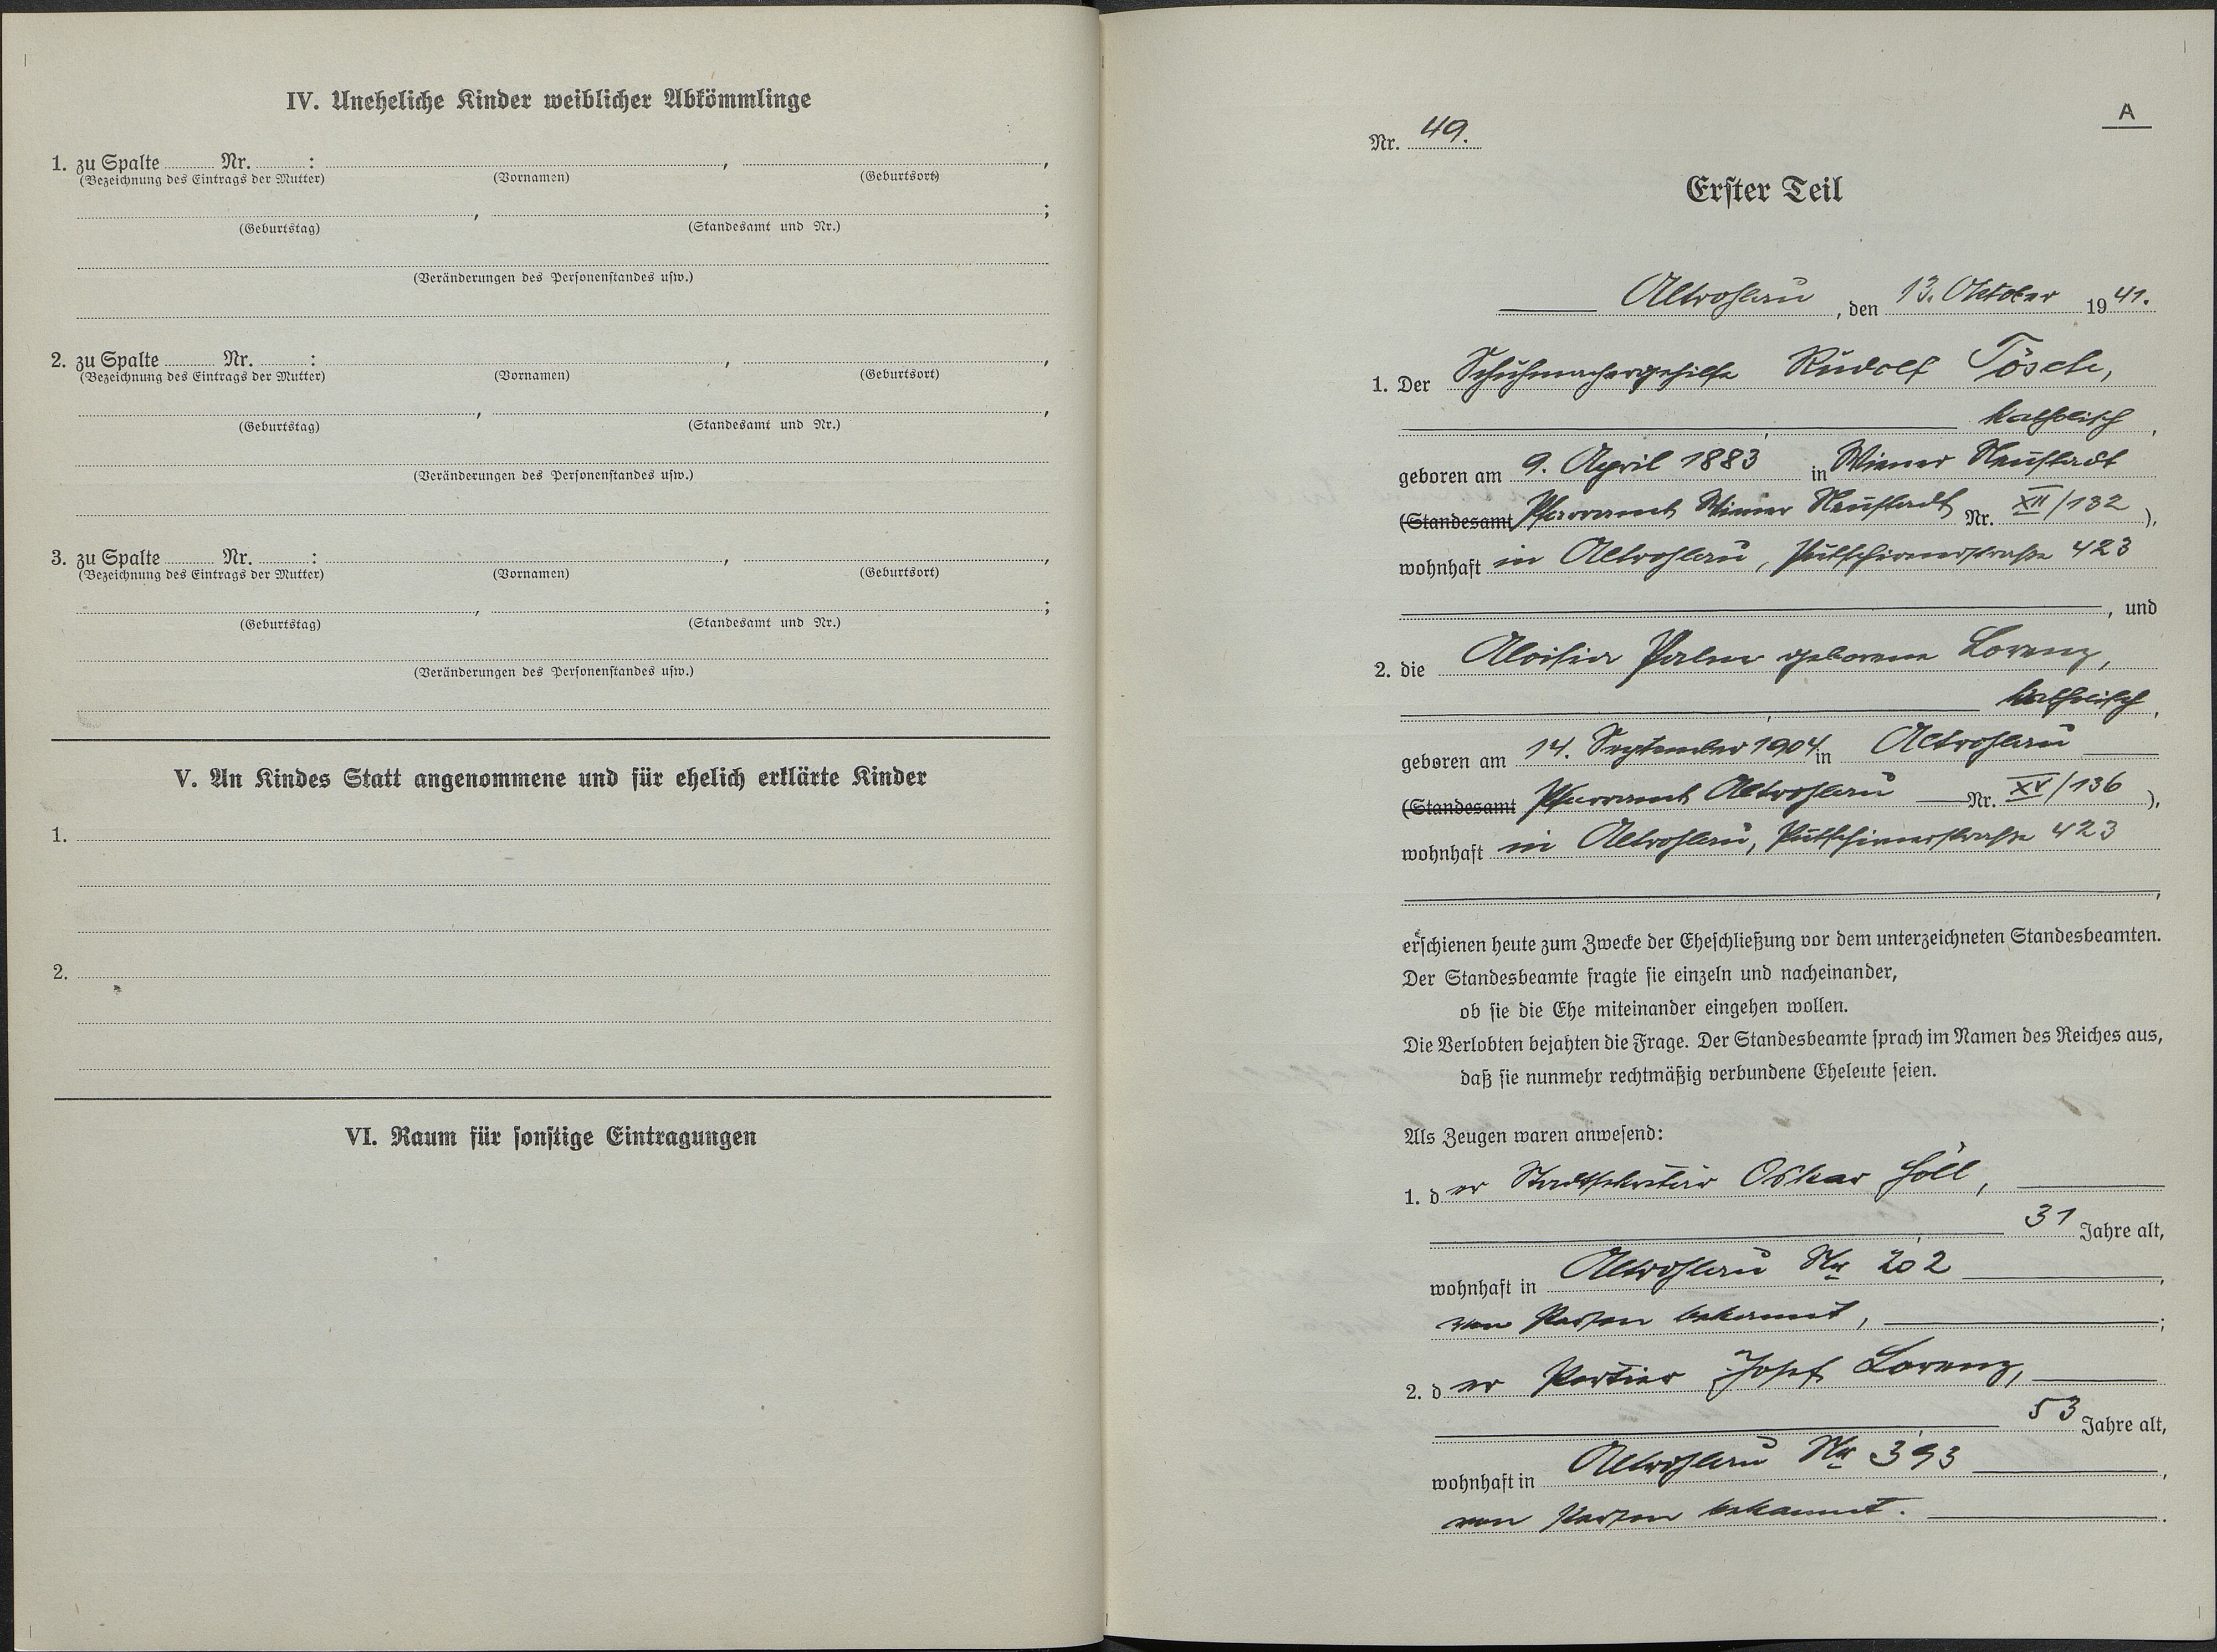 IV. Uneheliche Kinder weiblicher Abkömmlinge
1. zu Spalte Nr. : , ,
(Bezeichnung des Eintrags der Mutter) (Vornamen) (Geburtsort)
, ;
(Geburtstag) (Standesamt und Nr.)
(Veränderungen des Personenstandes usw.)
2. zu Spalte Nr. : , ,
(Bezeichnung des Eintrags der Mutter) (Vornamen) (Geburtsort)
, ,
(Geburtstag) (Standesamt und Nr.)
(Veränderungen des Personenstandes usw.)
3. zu Spalte Nr. : , ,
(Bezeichnung des Eintrags der Mutter) (Vornamen) (Geburtsort)
, ;
(Geburtstag) (Standesamt und Nr.)
(Veränderungen des Personenstandes usw.)
V. An Kindes Statt angenommene und für ehelich erklärte Kinder
1.
2.
VI. Raum für sonstige Eintragungen
A
Nr. 49.
Erster Teil
Altrohlau, den 13. Oktober 1941.
1. Der Schuhmachergehilfe Rudolf Tösch,
katholisch,
geboren am 9. April 1883 in Wiener Neustadt
(Standesamt Pfarramt Wiener Neustadt Nr. XII/132),
wohnhaft in Altrohlau, Putschirnerstraße 423
, und
2. die Aloisia Palm geborene Lorenz,
katholisch,
geboren am 14. September 1904 in Altrohlau
(Standesamt Pfarramt Altrohlau Nr. XV/136),
wohnhaft in Altrohlau, Putschirnerstraße 423
,
erschienen heute zum Zwecke der Eheschließung vor dem unterzeichneten Standesbeamten.
Der Standesbeamte fragte sie einzeln und nacheinander,
ob sie die Ehe miteinander eingehen wollen.
Die Verlobten bejahten die Frage. Der Standesbeamte sprach im Namen des Reiches aus,
daß sie nunmehr rechtmäßig verbundene Eheleute seien.
Als Zeugen waren anwesend:
1. der Stadtsekretär Oskar Höll,
31 Jahre alt,
wohnhaft in Altrohlau Nr 202,
von Person bekannt, ;
2. der Portier Josef Lorenz,
53 Jahre alt,
wohnhaft in Altrohlau Nr 393,
von Person bekannt.